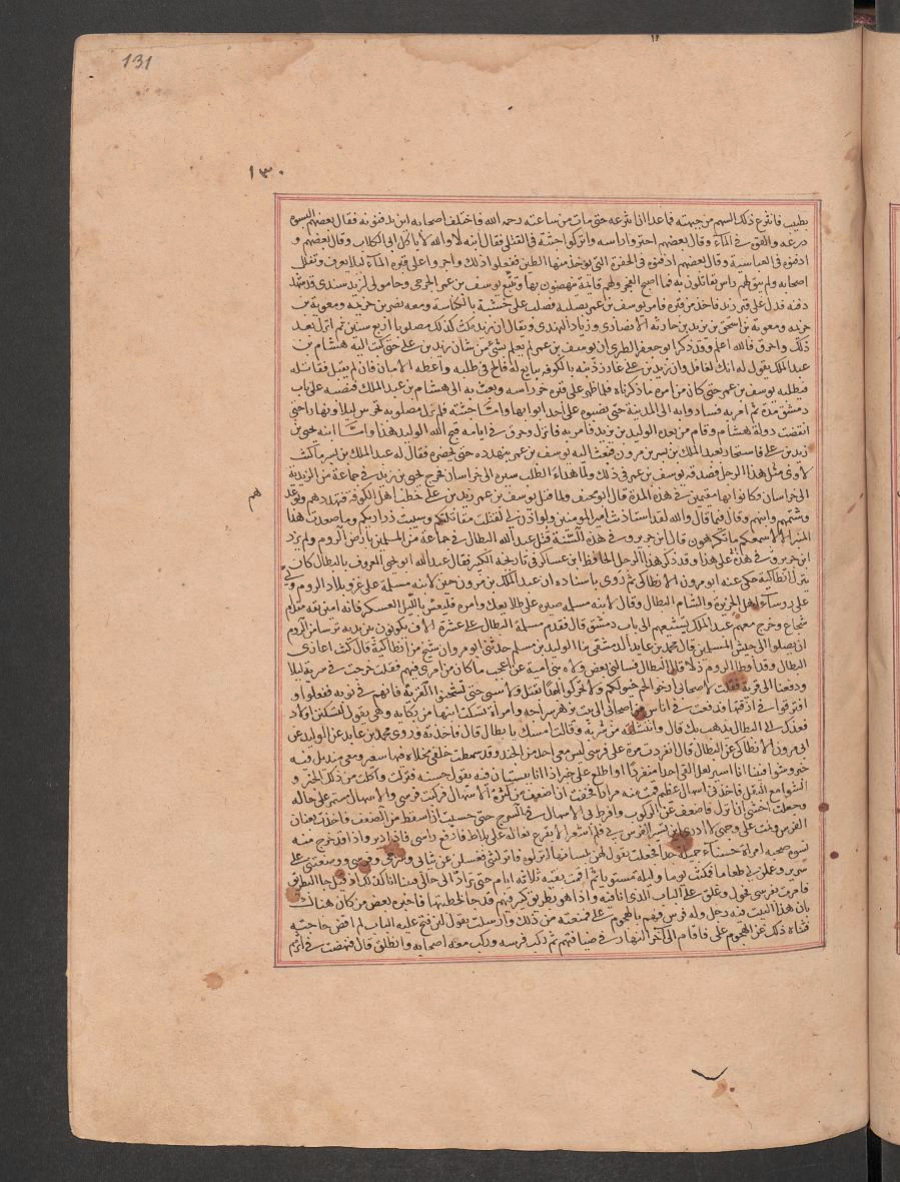 131
١٣٠
بطبيب فانتزع ذلك السهم من جبهته فما عدا ان انتزعه حتى مات من ساعته رحمه الله فاختلف اصحابه اين يدفنونه فقال بعضهم البسوه
درعه والقوه في الماء وقال بعضهم احتزوا راسه واتركوا جثته في القتلى فقال ابنه لا والله لا ياكل ابي الكلاب وقال بعضهم
ادفنوه في العباسية وقال بعضهم ادفنوه في الحفرة التي يوخذ منها الطين ففعلوا ذلك واجروا على قبره الماء ليلا يعرف
اصحابه ولم يبق لهم راس يقاتلون به فما اصبح الفجر ولهم قايمة ينهضون بها وتتبع يوسف بن عمر الجرحى وجا مولى لزيد سندي قد شهد
دفنه فدل على قبره فاخذ من قبره فامر يوسف بن عمر بصلبه فصلب على خشبة بالكناسة ومعه نصر بن خزيمة ومعوية بن
اسحق بن زيد بن حارثه الانصاري وزياد الهندي ويقال ان زيد مكث كذلك مصلوبا اربع سنين ثم انزل بعد
ذلك واحرق فالله اعلم وقد ذكر ابو جعفر الطبري ان يوسف بن عمر لم يعلم بشي من شان زيد بن علي حتى كتب اليه هشام بن
عبد الملك يقول له انك لغافل وان زيد بن علي غارز ذنبه بالكوفه يبايع له فالح في طلبه واعطه الامان فان لم يقبل فقاتله
فتطلبه يوسف بن عمر حتى كان من امره ما ذكرناه فلما ظهر على قبره حز راسه وبعث به الى هشام بن عبد الملك فنصبه على باب
دمشق مدة ثم امر به فساروا به الى المدينة حتى نصبوه على احد ابوابها واما جثته فلم تزل مصلوبه تحرس ليلا ونهارا حتى
انقضت دولة هشام وقام من بعده الوليد بن يزيد فامر به فانزل وحرق في ايامه قبح الله الوليد هذا واما ابنه يحيى بن
زيد بن علي فاستجار بعبد الملك بن بسر بن مرون فبعث اليه يوسف بن عمر يتهدده حتى يحضره فقال له عبد الملك بن بسر ما كنت
لاوي مثل هذا الرجل فصدقه يوسف بن عمر في ذلك ولما هدا الطلب سيره الى خراسان فخرج يحيى بن زيد في جماعة من الزيدية
الى خراسان فكانوا بها مقيمين في هذه المدة قال ابو مخنف ولما قتل يوسف بن عمر زيد بن علي خطب اهل الكوفه فتهددهم وتوعد
هم
وشتمهم وقال فيما قال والله لقد استاذنت امير المومنين ولو اذن لي لقتلت مقاتلتكم وسبيت ذراريكم وما صعدت هذا
المنبر الا لاسمعكم ما تكرهون قال ابن جرير وفي هذه السنة قتل عبد الله البطال في جماعة من المسلمين بارض الروم ولم يزد
ابن جرير على هذا وقد ذكر هذا الرجل الحافظ ابن عساكر في تاريخه الكبير فقال عبد الله ابو يحيى المعروف بالبطال كان
ينزل انطاكية حكى عنه ابو مرون الانطاكي ثم روى باسناده ان عبد الملك بن مرون حين لابنه مسلمه على غزو بلاد الروم
على روساء اهل الجزيرة والشام البطال وقال لابنه مسلمه صيره على طلايعك وامره فليعس بالليل العسكر فانه امين ثقه مقدام
شجاع وخرج معهم عبد الملك يشيعهم الى باب دمشق قال فقدم مسلمة البطال على عشرة الاف يكونون بين يديه ترسا من الروم
ان يصلوا الى جيش المسلمين قال محمد بن عايذ الدمشقي ثنا الوليد بن مسلم حدثني ابو مرون شيخ من انطاكية قال كنت اغازي
البطال وقد اوطا الروم ذلا قال البطال فسالني بعض ولاة بني امية عن اعجب ما كان من امري فيهم فقلت خرجت في سرية ليلا
ودفعنا الى قرية فقلت لاصحابي ارخوا لجم خيولكم ولا تحركوا احدا بقتل ولا سبي حتى ففعلوا و
افترقوا في ازقتها فدفعت في اناس من اصحابي الى بيت يزهر سراجه وامراة تسكت ابنها من بكايه وهي تقول لتسكتن او لاد
فعنك الى البطال يذهب بك قال وانتشلته من سريره وقالت امسك يا بطال قال فاخذته وروى محمد بن عايذ عن الوليد عن
ابي مرون الانطاكي عن البطال قال انفردت مرة على فرسي ليس معي احد من الجند وقد سمطت خلفي مخلاة فيها شعير ومعي منديل فيه
خبز وشوا فبينا انا اسير لعلي القى احدا منفردا او اطلع على خبر اذا انا ببستان فيه بقول حسنه فنزلت واكلت من ذلك الخبز و
الشوا مع البقل فاخذني اسهال عظيم قمت منه مرارا فخفت ان اضعف من كثرة الاسهال فركبت فرسي والاسهال مستمر على حاله
وجعلت اخشى ان انزل فاضعف عن الركوب وافرط بي الاسهال في السرج حتى خشيت ان اسقط من الضعف فاخذت بعنان
الفرس ونمت على وجهي لا ادري اين يسير الفرس بي فلم اشعر الا بقرع نعاله على بلاط فارفع راسي فاذا دير واذا قد خرج منه
نسوه صحبه امراة حسناء جميلة جدا فجعلت تقول لهن بلسانها انزلنه فانزلنني فغسلن عني ثيابي وسرجي وفرسي ووضعنني على
سرير وعملن لي طعاما فمكثت يوما وليلة مستويا ثم اقمت بقية ثلاثه ايام حتى تراد الي حالي فبينا انا كذلك اذ قيل جا البطريق
فامرت بفرسي فحول وغلق علي الباب الذي انا فيه واذا هو بطريق كبير فيهم قد جا لخطبتها فاخبره بعض من كان هنالك
بان هذا البيت فيه رجل وله فرس فهم بالهجوم علي فمنعته من ذلك وارسلت تقول له ان فتح عليه الباب لم اقض حاجته
فثناه ذلك عن الهجوم علي فاقام الى اخر النهار في ضيافتهم ثم ركب فرسه وركب معه اصحابه وانطلق قال فنهضت في اثرهم